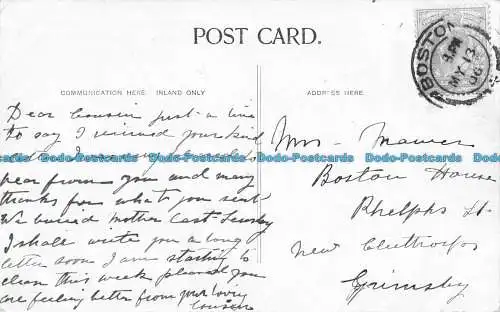 POST CARD.
COMMUNICATION HERE. INLAND ONLY
ADDRESS HERE.
BOSTON
MY 13
06
Dear Cousin just a line
to say I received your kind
letter I was very pleased to
hear from you and many
thanks for what you sent
We buried Mother last
I shall write you a long
letter soon I am starting to
clean this week pleased you
are feeling better from your loving
Cousin
Mrs. Mawer
Boston House
Phelphs St.
New Cleethorpes
Grimsby
Dodo-Postcards Dodo-Postcards Dodo-Postcards Dodo-Postcards Dodo-Postcards